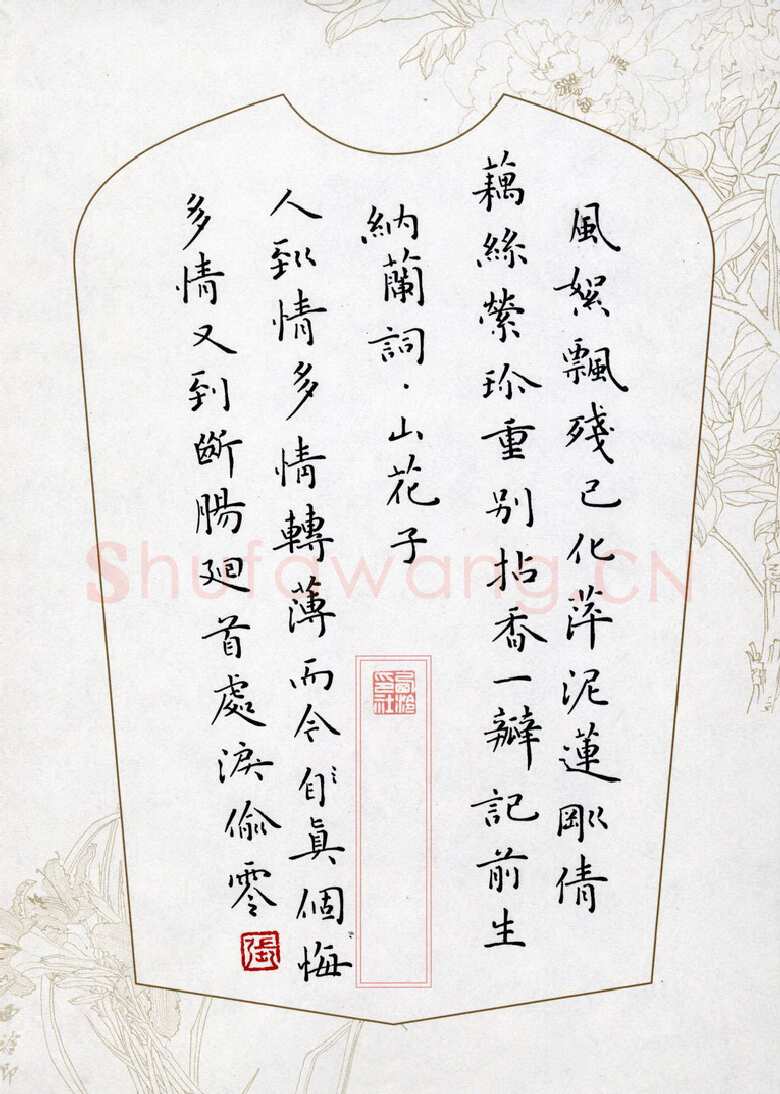 風絮飄殘已化萍泥蓮剛倩
藕絲縈珍重別拈香一瓣記前生
納蘭詞·山花子
人到情多情轉薄而今自真個悔
多情又到斷腸廻首處淚偷零
張
西泠印社
Shufawang.CN